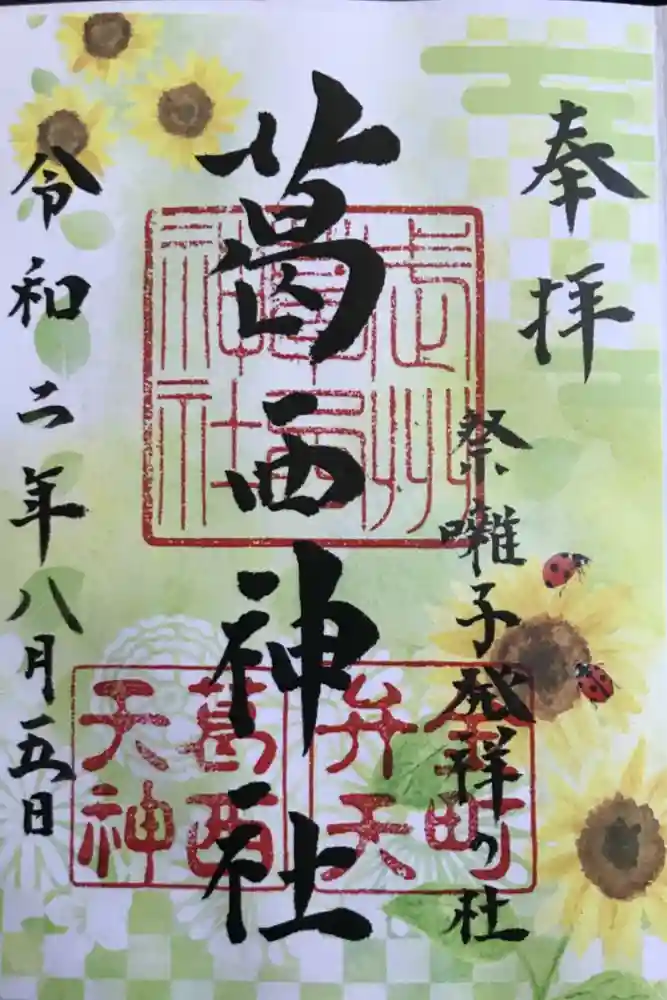 奉拝
祭囃子発祥の杜
葛西神社
令和二年八月五日
武州
葛西
神社
金町
弁天
葛西
天神